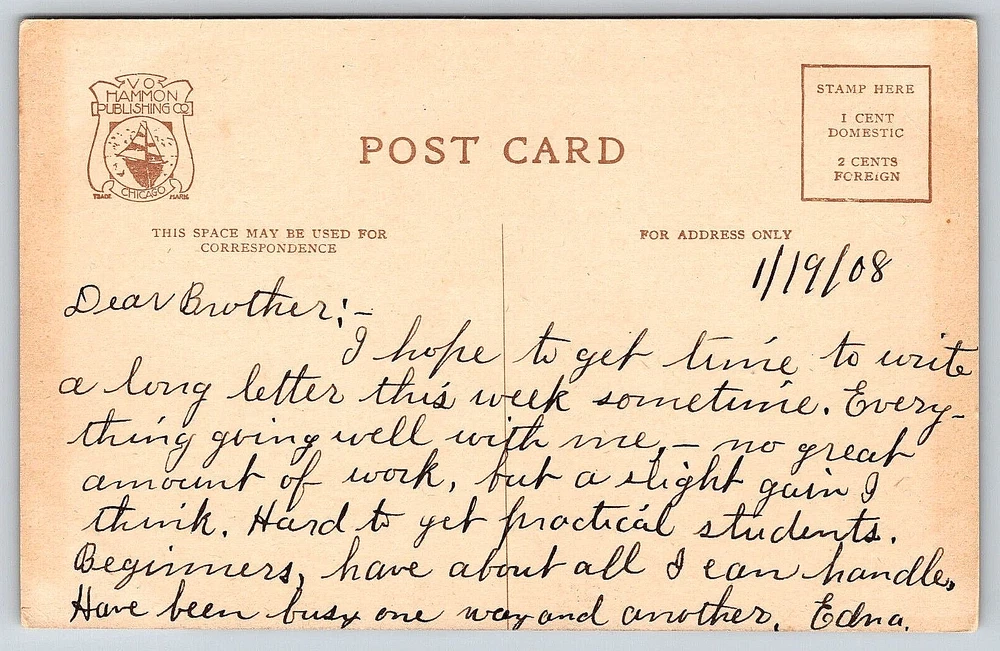 V O
HAMMON
PUBLISHING CO
CHICAGO
TRADE MARK
POST CARD
STAMP HERE
1 CENT
DOMESTIC
2 CENTS
FOREIGN
THIS SPACE MAY BE USED FOR
CORRESPONDENCE
FOR ADDRESS ONLY
1/19/08
Dear Brother:-
I hope to get time to write
a long letter this week sometime. Every-
thing going well with me, – no great
amount of work, but a slight gain I
think. Hard to get practical students.
Beginners, have about all I can handle,
Have been busy one way and another. Edna.